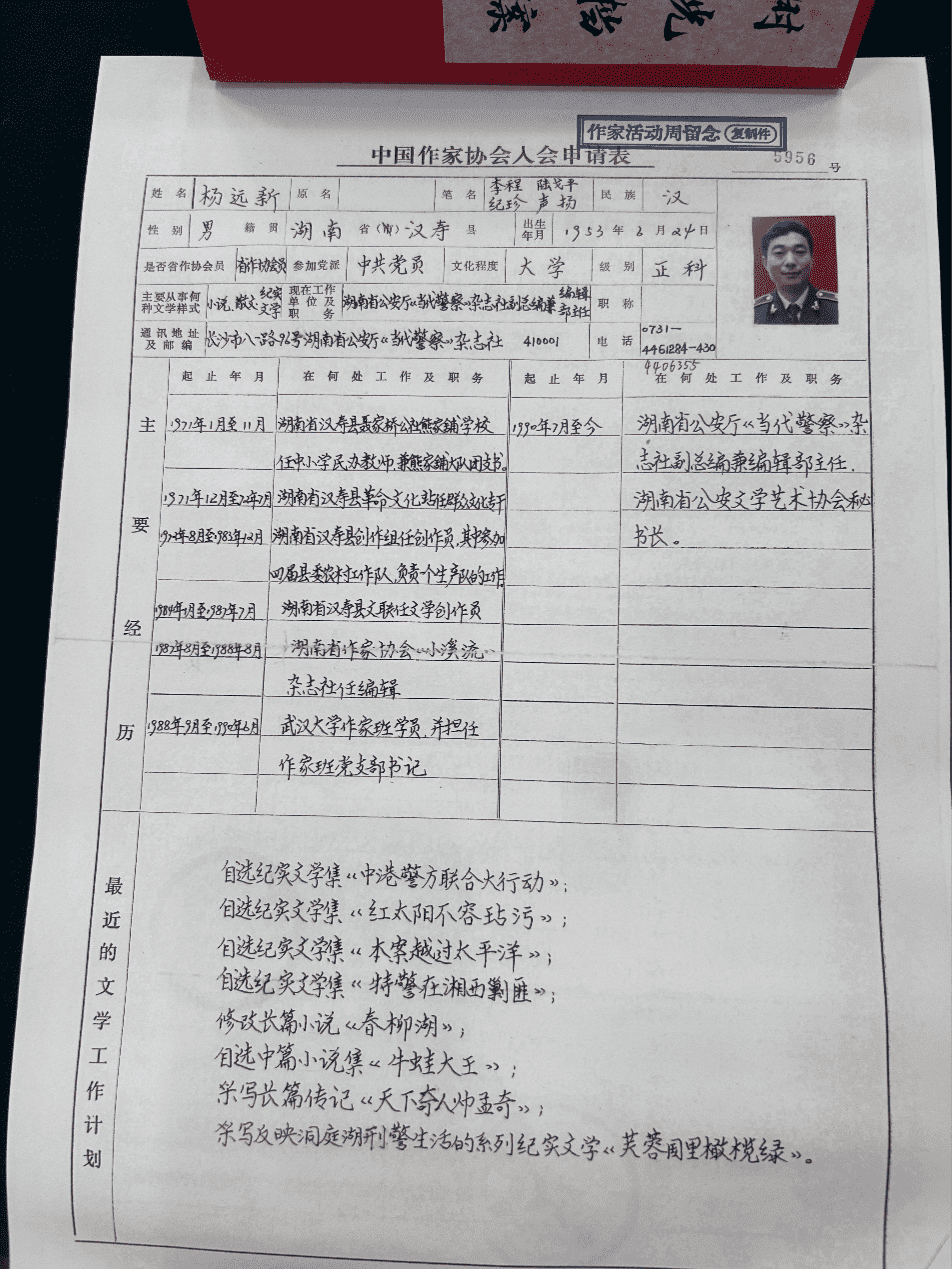 时光档案
作家活动周留念 复制件
中国作家协会入会申请表
5956 号
姓名 杨远新 原名 笔名 李程 陆戈平 纪珍 声扬 民族 汉
性别 男 籍贯 湖南 省(市) 汉寿 县 出生年月 1953年6月24日
是否省作协会员 省作协会员 参加党派 中共党员 文化程度 大学 级别 正科
主要从事何种文学样式 小说、散文、纪实文学 现在工作单位及职务 湖南省公安厅《当代警察》杂志社副总编兼编辑部主任 职称
通讯地址及邮编 长沙市八一路96号湖南省公安厅《当代警察》杂志社 410001 电话 0731-4461284-430
4406355
主要经历
起止年月 在何处工作及职务 起止年月 在何处工作及职务
1971年1月至11月 湖南省汉寿县聂家桥公社熊家铺学校
任中小学民办教师,兼熊家铺大队团支书。
1971年12月至72年7月 湖南省汉寿县革命文化站任群众文化专干
1972年8月至1983年12月 湖南省汉寿县创作组任创作员,其中参加
四届县委农村工作队,负责一个生产队的工作
1984年1月至1987年7月 湖南省汉寿县文联任文学创作员
1987年8月至1988年8月 湖南省作家协会《小溪流》
杂志社任编辑
1988年9月至1990年6月 武汉大学作家班学员,并担任
作家班党支部书记
1990年7月至今 湖南省公安厅《当代警察》杂
志社副总编兼编辑部主任.
湖南省公安文学艺术协会秘
书长。
最近的文学工作计划
自选纪实文学集《中港警方联合大行动》;
自选纪实文学集《红太阳不容玷污》;
自选纪实文学集《本案越过太平洋》;
自选纪实文学集《特警在湘西剿匪》;
修改长篇小说《春柳湖》;
自选中篇小说集《牛蛙大王》;
采写长篇传记《天下奇人帅孟奇》;
采写反映洞庭湖刑警生活的系列纪实文学《芙蓉国里橄榄绿》。